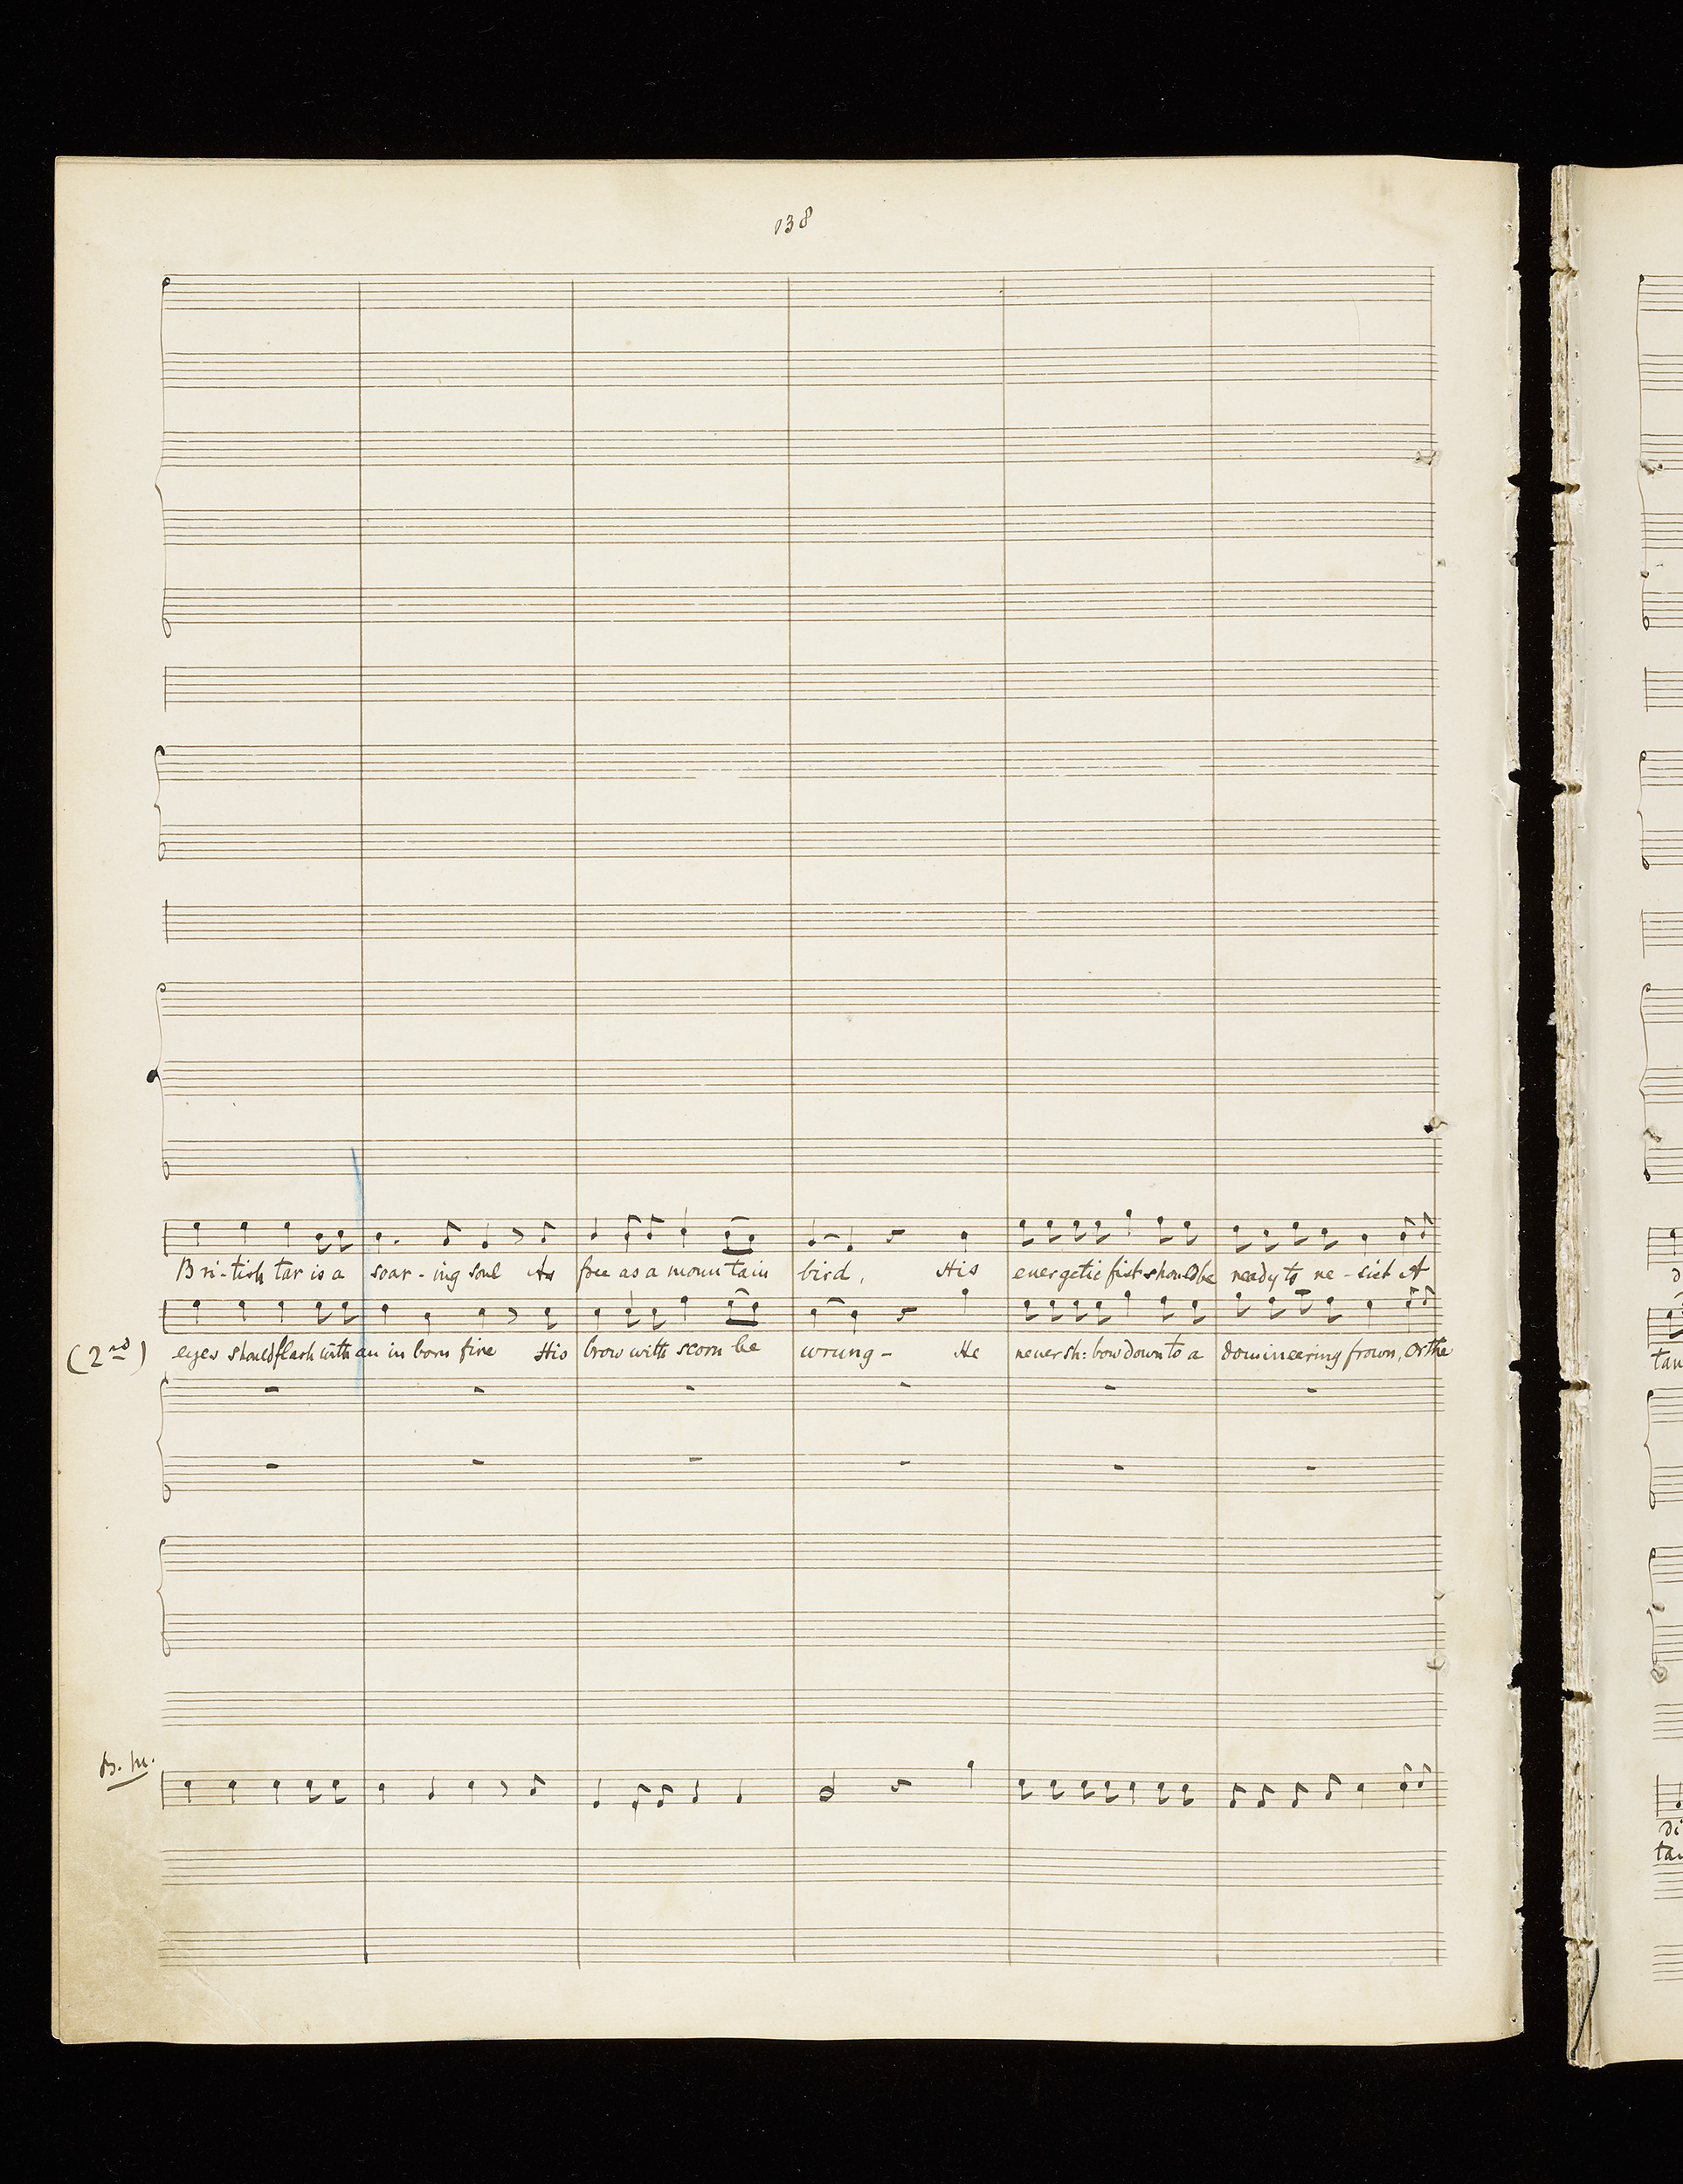 138
Bri-tish tar is a soar-ing soul As free as a mountain bird, His energetic fist should be ready to re-sist A
(2nd) eyes should flash with an in born fire His brow with scorn be wrung- He never sh: bow down to a domineering frown, Or the
tau
B. M.
di